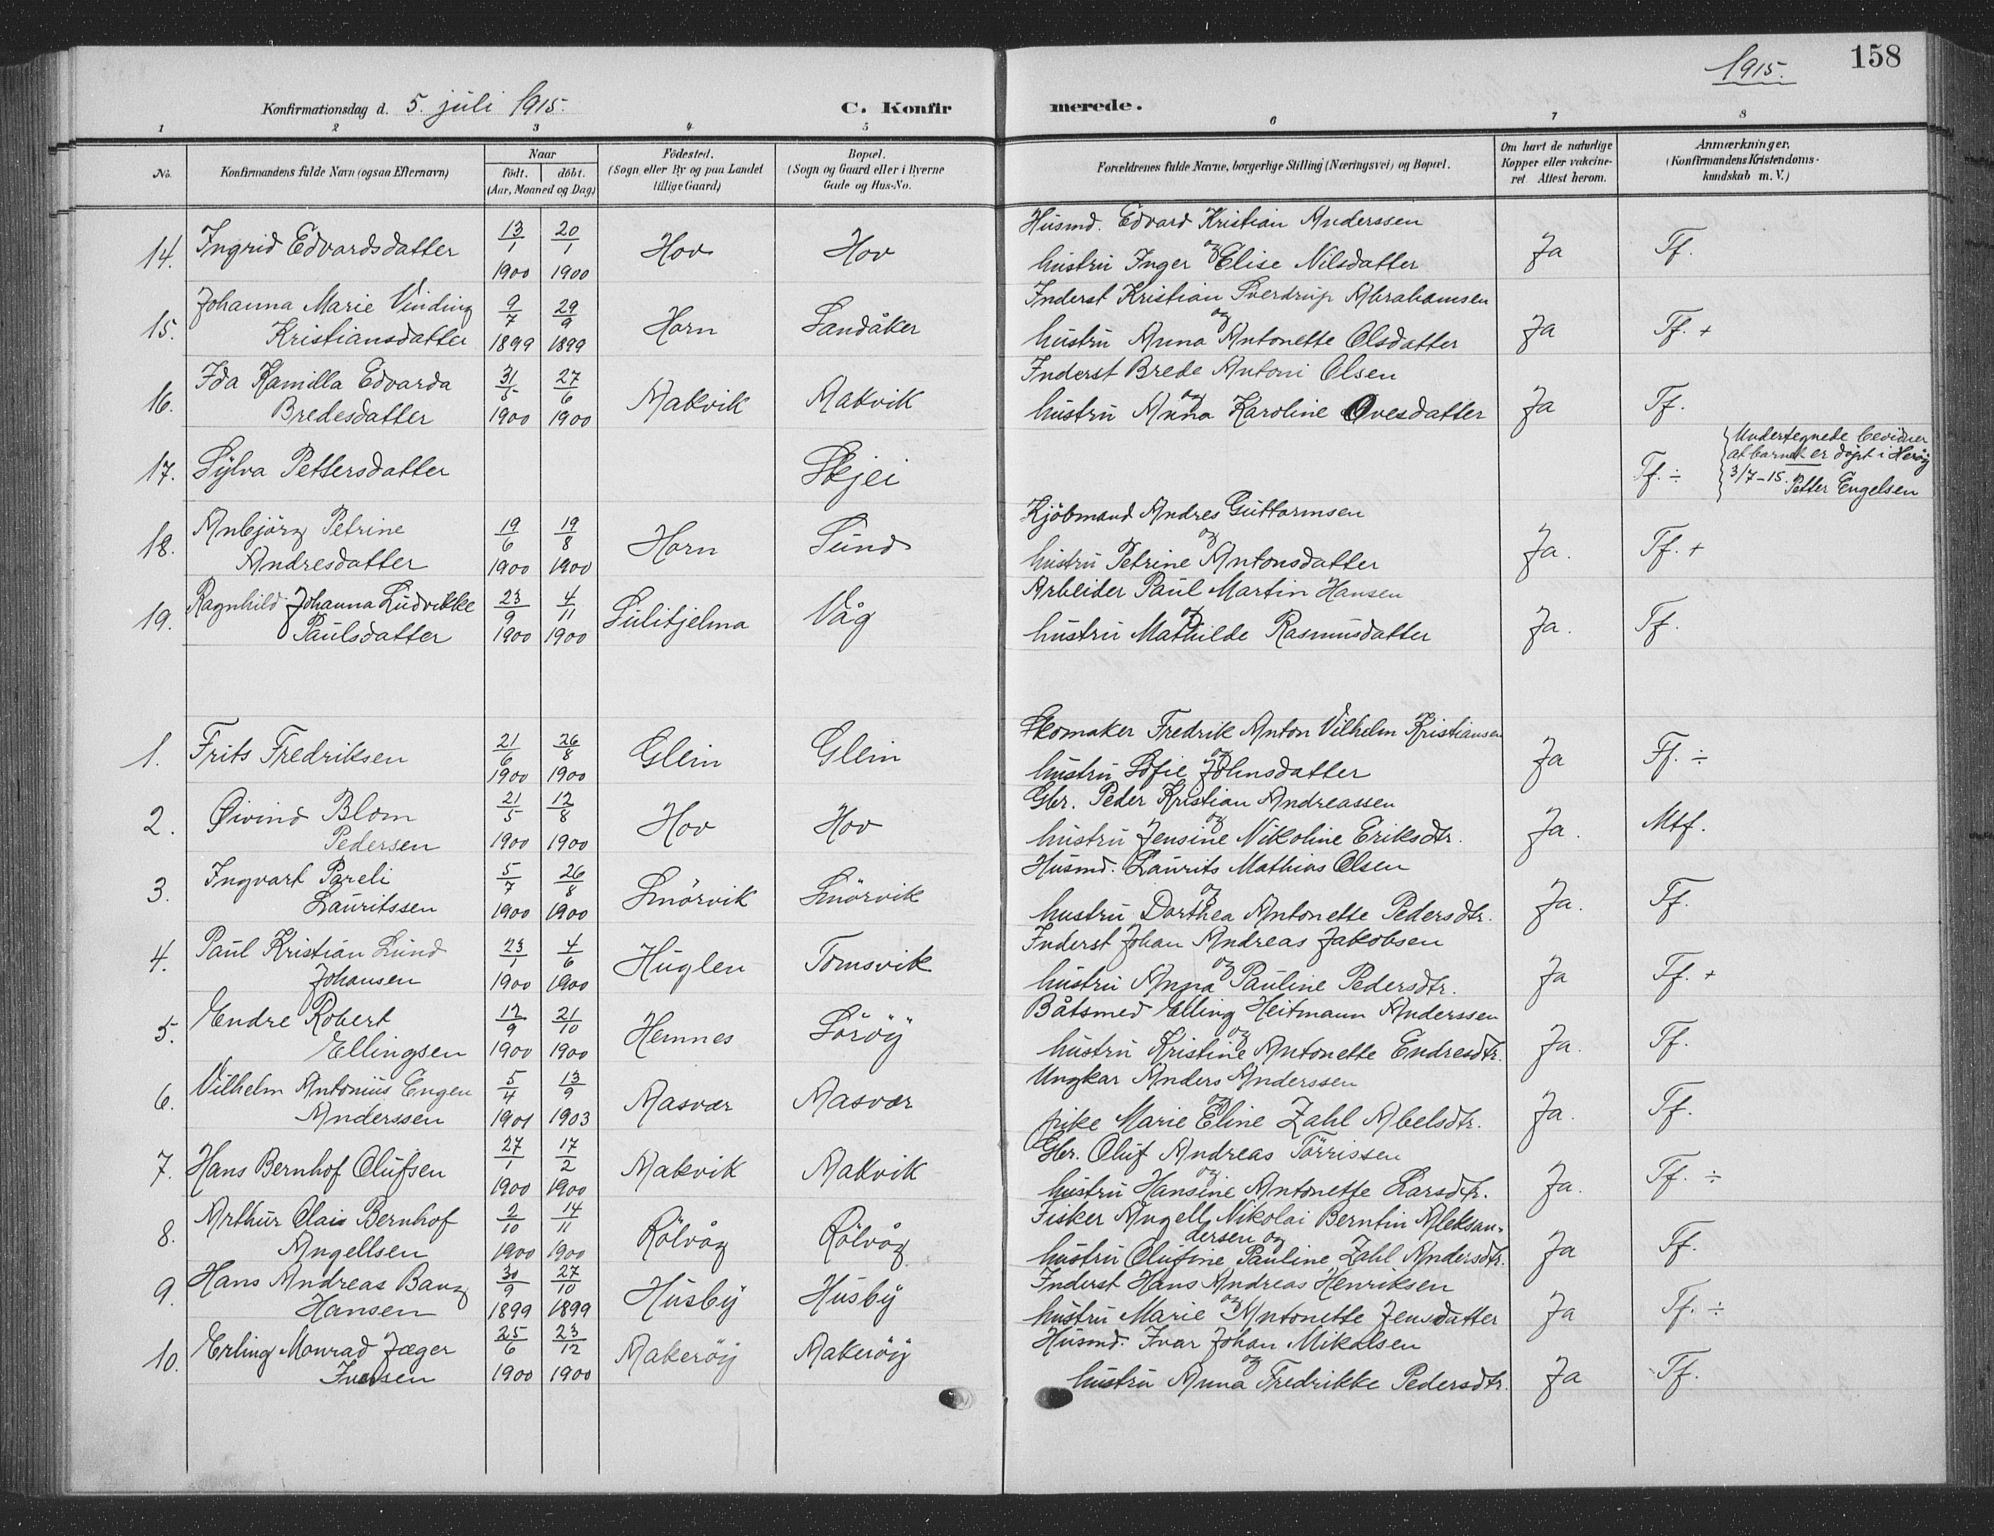 158
1915.
Konfirmationsdag d. 5. juli 1915.
C. Konfirmerede.
1 2 3 4 5 6 7 8
No. Konfirmandens fulde Navn (ogsaa Efternavn) Naar født. døbt. (Aar, Maaned og Dag) Fødested. (Sogn eller By og paa Landet tillige Gaard) Bopæl. (Sogn og Gaard eller i Byerne Gade og Hus-No. Forældrenes fulde Navne, borgerlige Stilling (Næringsvei) og Bopæl. Om havt de naturlige Kopper eller vakcineret Attest herom. Anmærkninger, (Konfirmandens Kristendomskundskab m. V.)
14. Ingrid Edvardsdatter 13/1 1900 20/1 1900 Hov Hov Husmd. Edvard Kristian Anderssen og
hustru Inger Elise Nilsdatter Ja Tf.
15. Johanna Marie Vinding
Kristiansdatter 9/7 1899 29/9 1899 Horn Sandåker Inderst Kristian Sverdrup Abrahamsen og
hustru Anna Antonette Olsdatter Ja Tf. +
16. Ida Kamilla Edvarda
Bredesdatter 31/5 1900 27/6 1900 Aakvik Aakvik Inderst Brede Antoni Olsen og
hustru Anna Karoline Ovesdatter Ja Tf.
17. Sylva Pettersdatter Skjei Tf. ÷ Undertegnede bevidner
at barnet er døpt i Herøy
3/7-15. Petter Engelsen
18. Anbjörg Petrine
Andresdatter 19/6 1900 19/8 1900 Horn Sund Kjöbmand Andres Guttormsen og
hustru Petrine Antonsdatter Ja. Tf. +
19. Ragnhild Johanna Ludvikke
Paulsdatter 23/9 1900 4/11 1900 Sulitjelma Våg Arbeider Paul Martin Hansen og
hustru Mathilde Rasmusdatter Ja. Tf.
1. Frits Fredriksen 21/6 1900 26/8 1900 Glein Glein Skomaker Fredrik Anton Vilhelm Kristiansen og
hustru Sofie Johnsdatter Ja Tf. ÷
2. Øivind Blom
Pedersen 21/5 1900 12/8 1900 Hov Hov Gbr. Peder Kristian Andreassen og
hustru Jensine Nikoline Eriksdtr. Ja. Mtf.
3. Ingvart Pareli
Lauritssen 5/7 1900 26/8 1900 Snörvik Snörvik Husmd. Laurits Mathias Olsen og
hustru Dorthea Antonette Pedersdtr. Ja. Tf.
4. Paul Kristian Lund
Johansen 23/1 1900 4/6 1900 Huglen Tomsvik Inderst Johan Andreas Jakobsen og
hustru Anna Pauline Pedersdtr. Ja Tf. +
5. Endre Robert
Ellingsen 12/9 1900 21/10 1900 Hemnes Sörøy Båtsmed Elling Heitmann Anderssen og
hustru Kristine Antonette Endresdtr. Ja. Tf.
6. Vilhelm Antonius Engen
Anderssen 5/4 1901 13/9 1903 Aasvær Aasvær Ungkar Anders Anderssen og
pike Marie Eline Zahl Abelsdtr. Ja. Tf.
7. Hans Bernhof Olufsen 27/1 1900 17/2 1900 Aakvik Aakvik Gbr. Oluf Andreas Törrissen og
hustru Hansine Antonette Larsdtr. Ja. Tf. ÷
8. Arthur Olais Bernhof
Angellsen 2/10 1900 14/11 1900 Rölvåg Rölvåg Fisker Angell Nikolai Berntin Aleksan-
dersen og
hustru Olufine Pauline Zahl Andersdtr. Ja Tf.
9. Hans Andreas Bang
Hansen 30/9 1899 27/10 1899 Husby Husby Inderst Hans Andreas Henriksen og
hustru Marie Antonette Jensdatter Ja Tf. ÷
10. Erling Monrad Jæger
Iversen 25/6 1900 23/12 1900 Aakerøy Aakerøy Husmd. Ivar Johan Mikalsen og
hustru Anna Fredrikke Pedersdtr. Ja Tf.